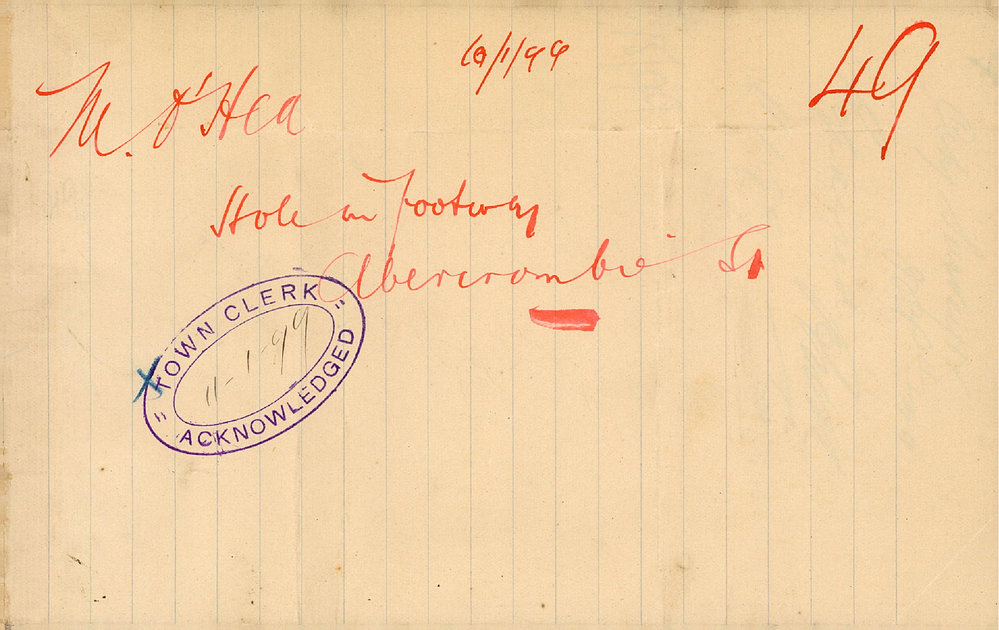 10/1/99
49
M. O'Hea
Hole in footway
Abercrombie St
" TOWN CLERK "
11-1-99
ACKNOWLEDGED